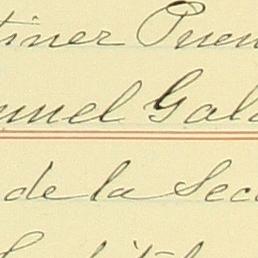 tiner Puen
nuel Gala
de la Sec